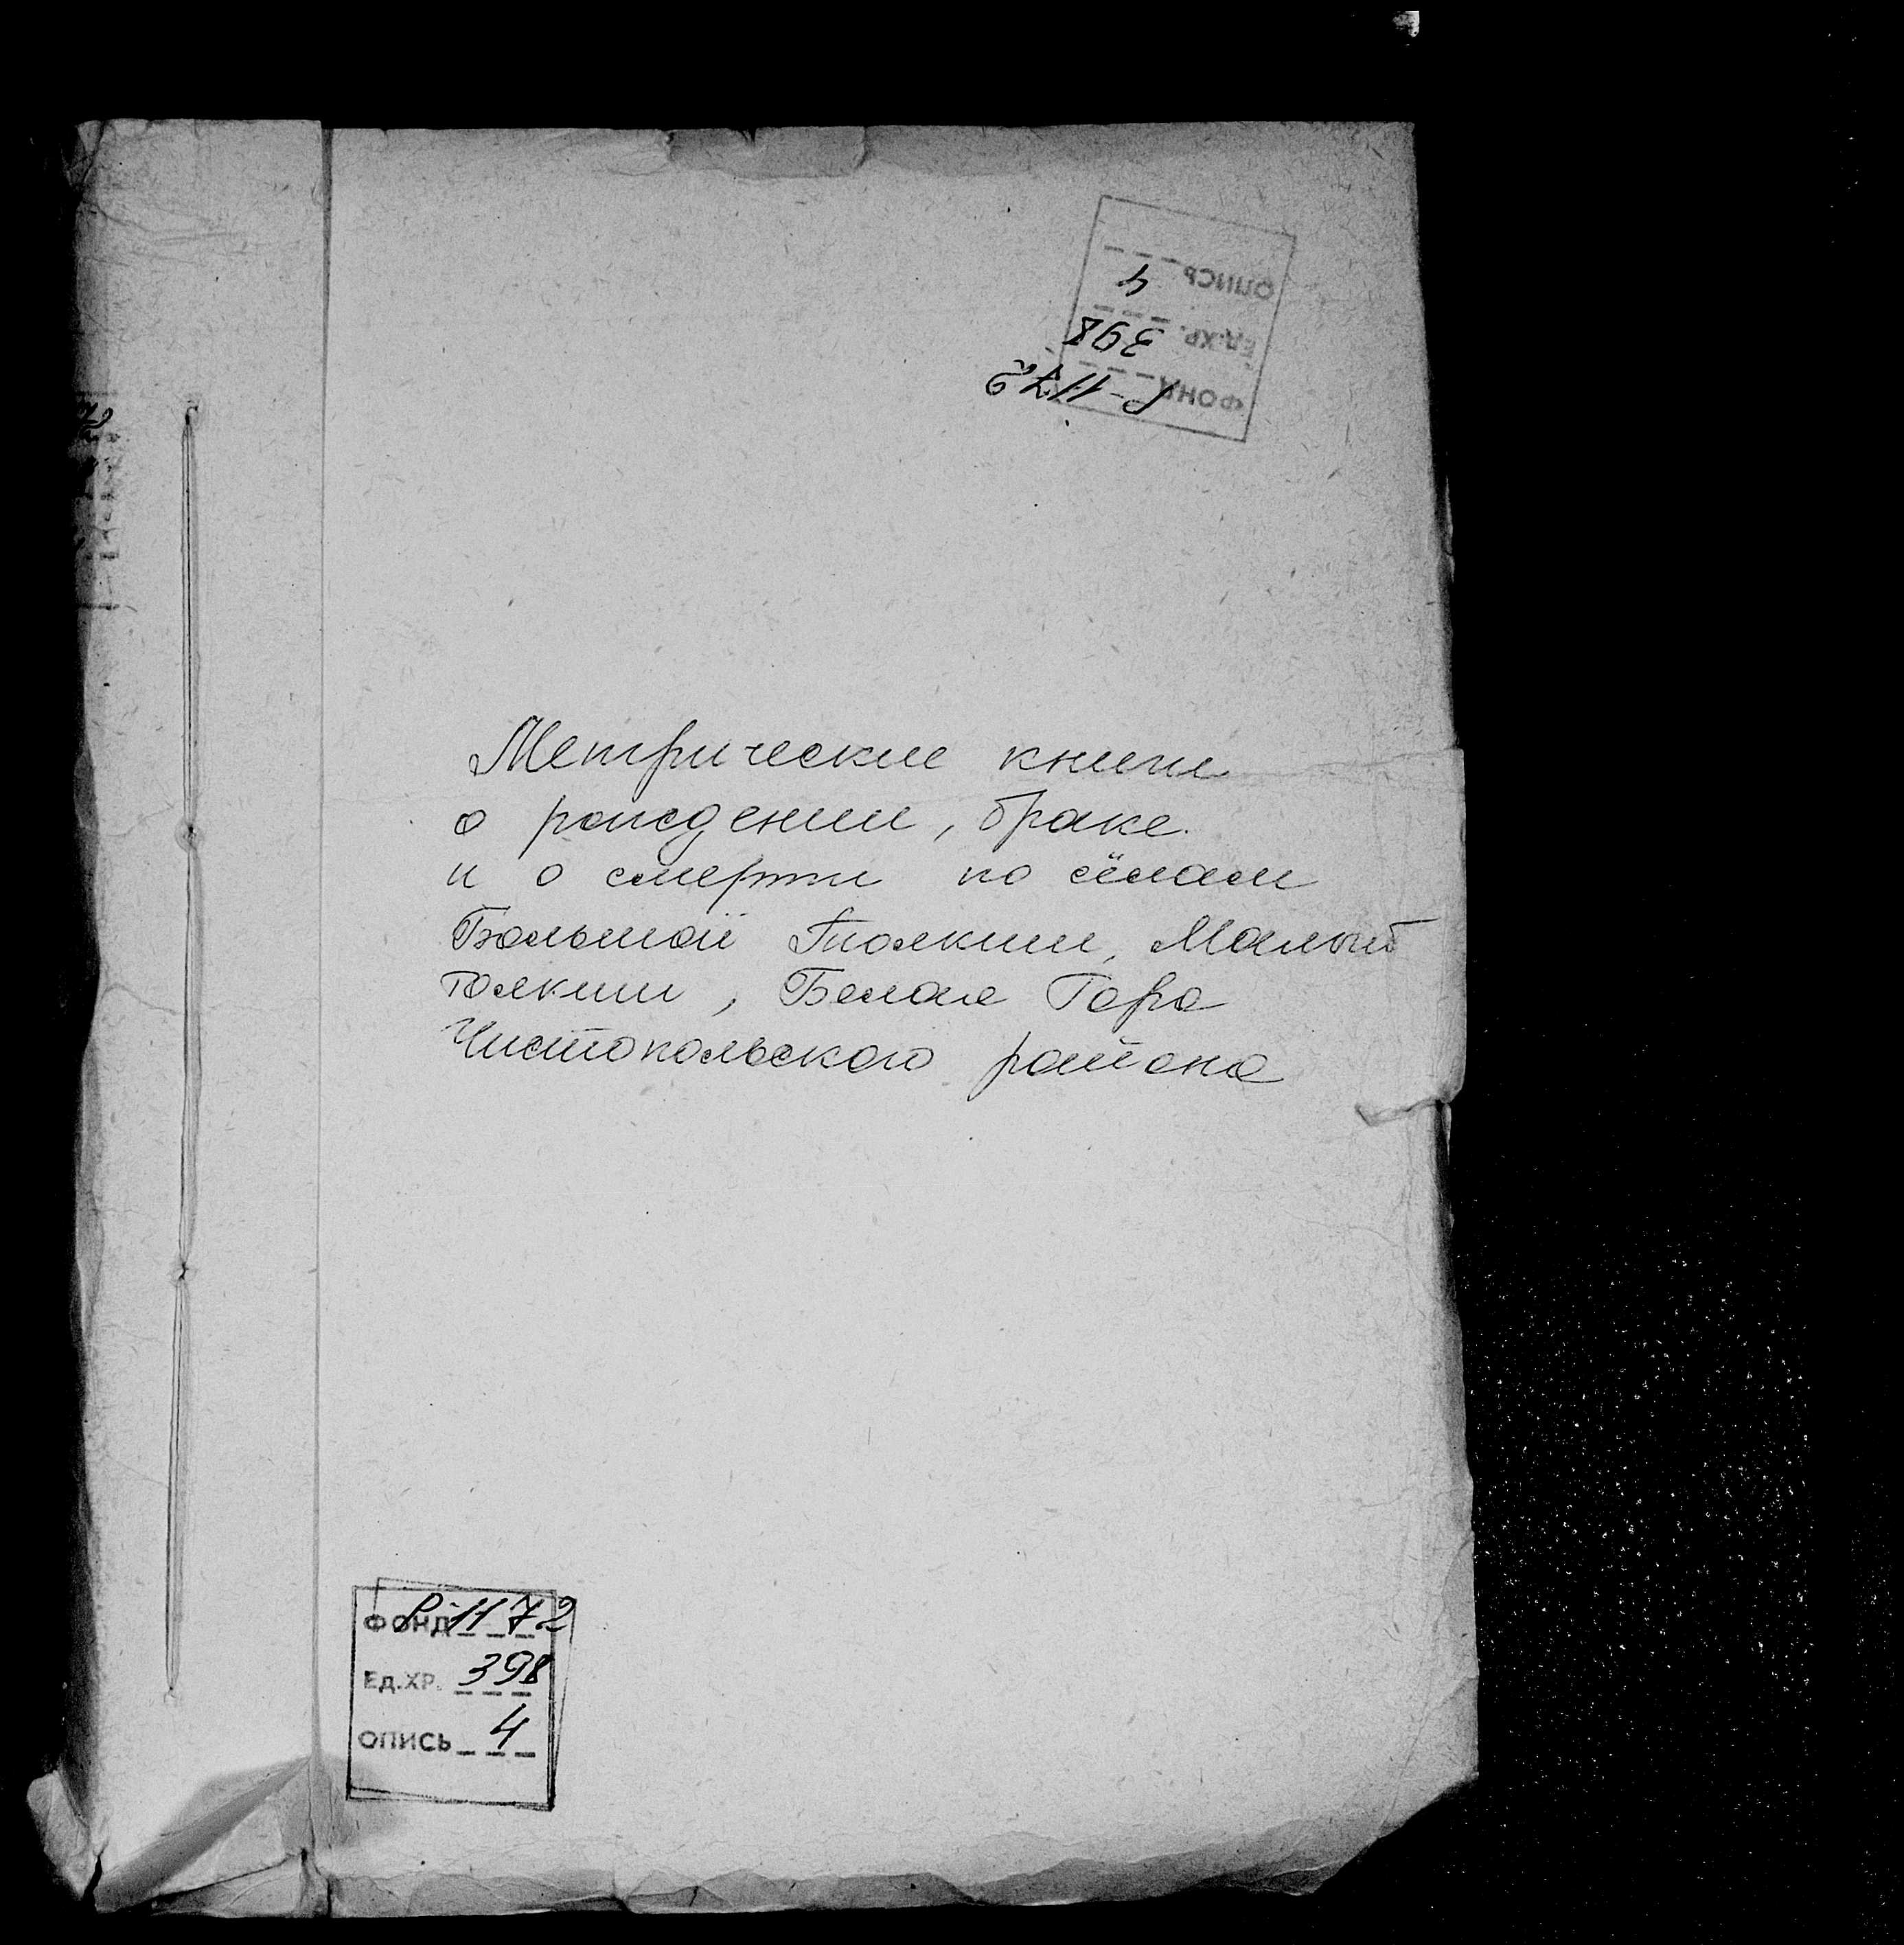 ОПИСЬ 4
ЕД.ХР. 398
ФОНД Р-1172
Метрические книги
о рождении, браке
и о смерти по сёлам
Большой Толкиш, Малый
Толкиш, Белая Гора
Чистопольского района
ФОНД Р-1172
ЕД.ХР. 398
ОПИСЬ 4